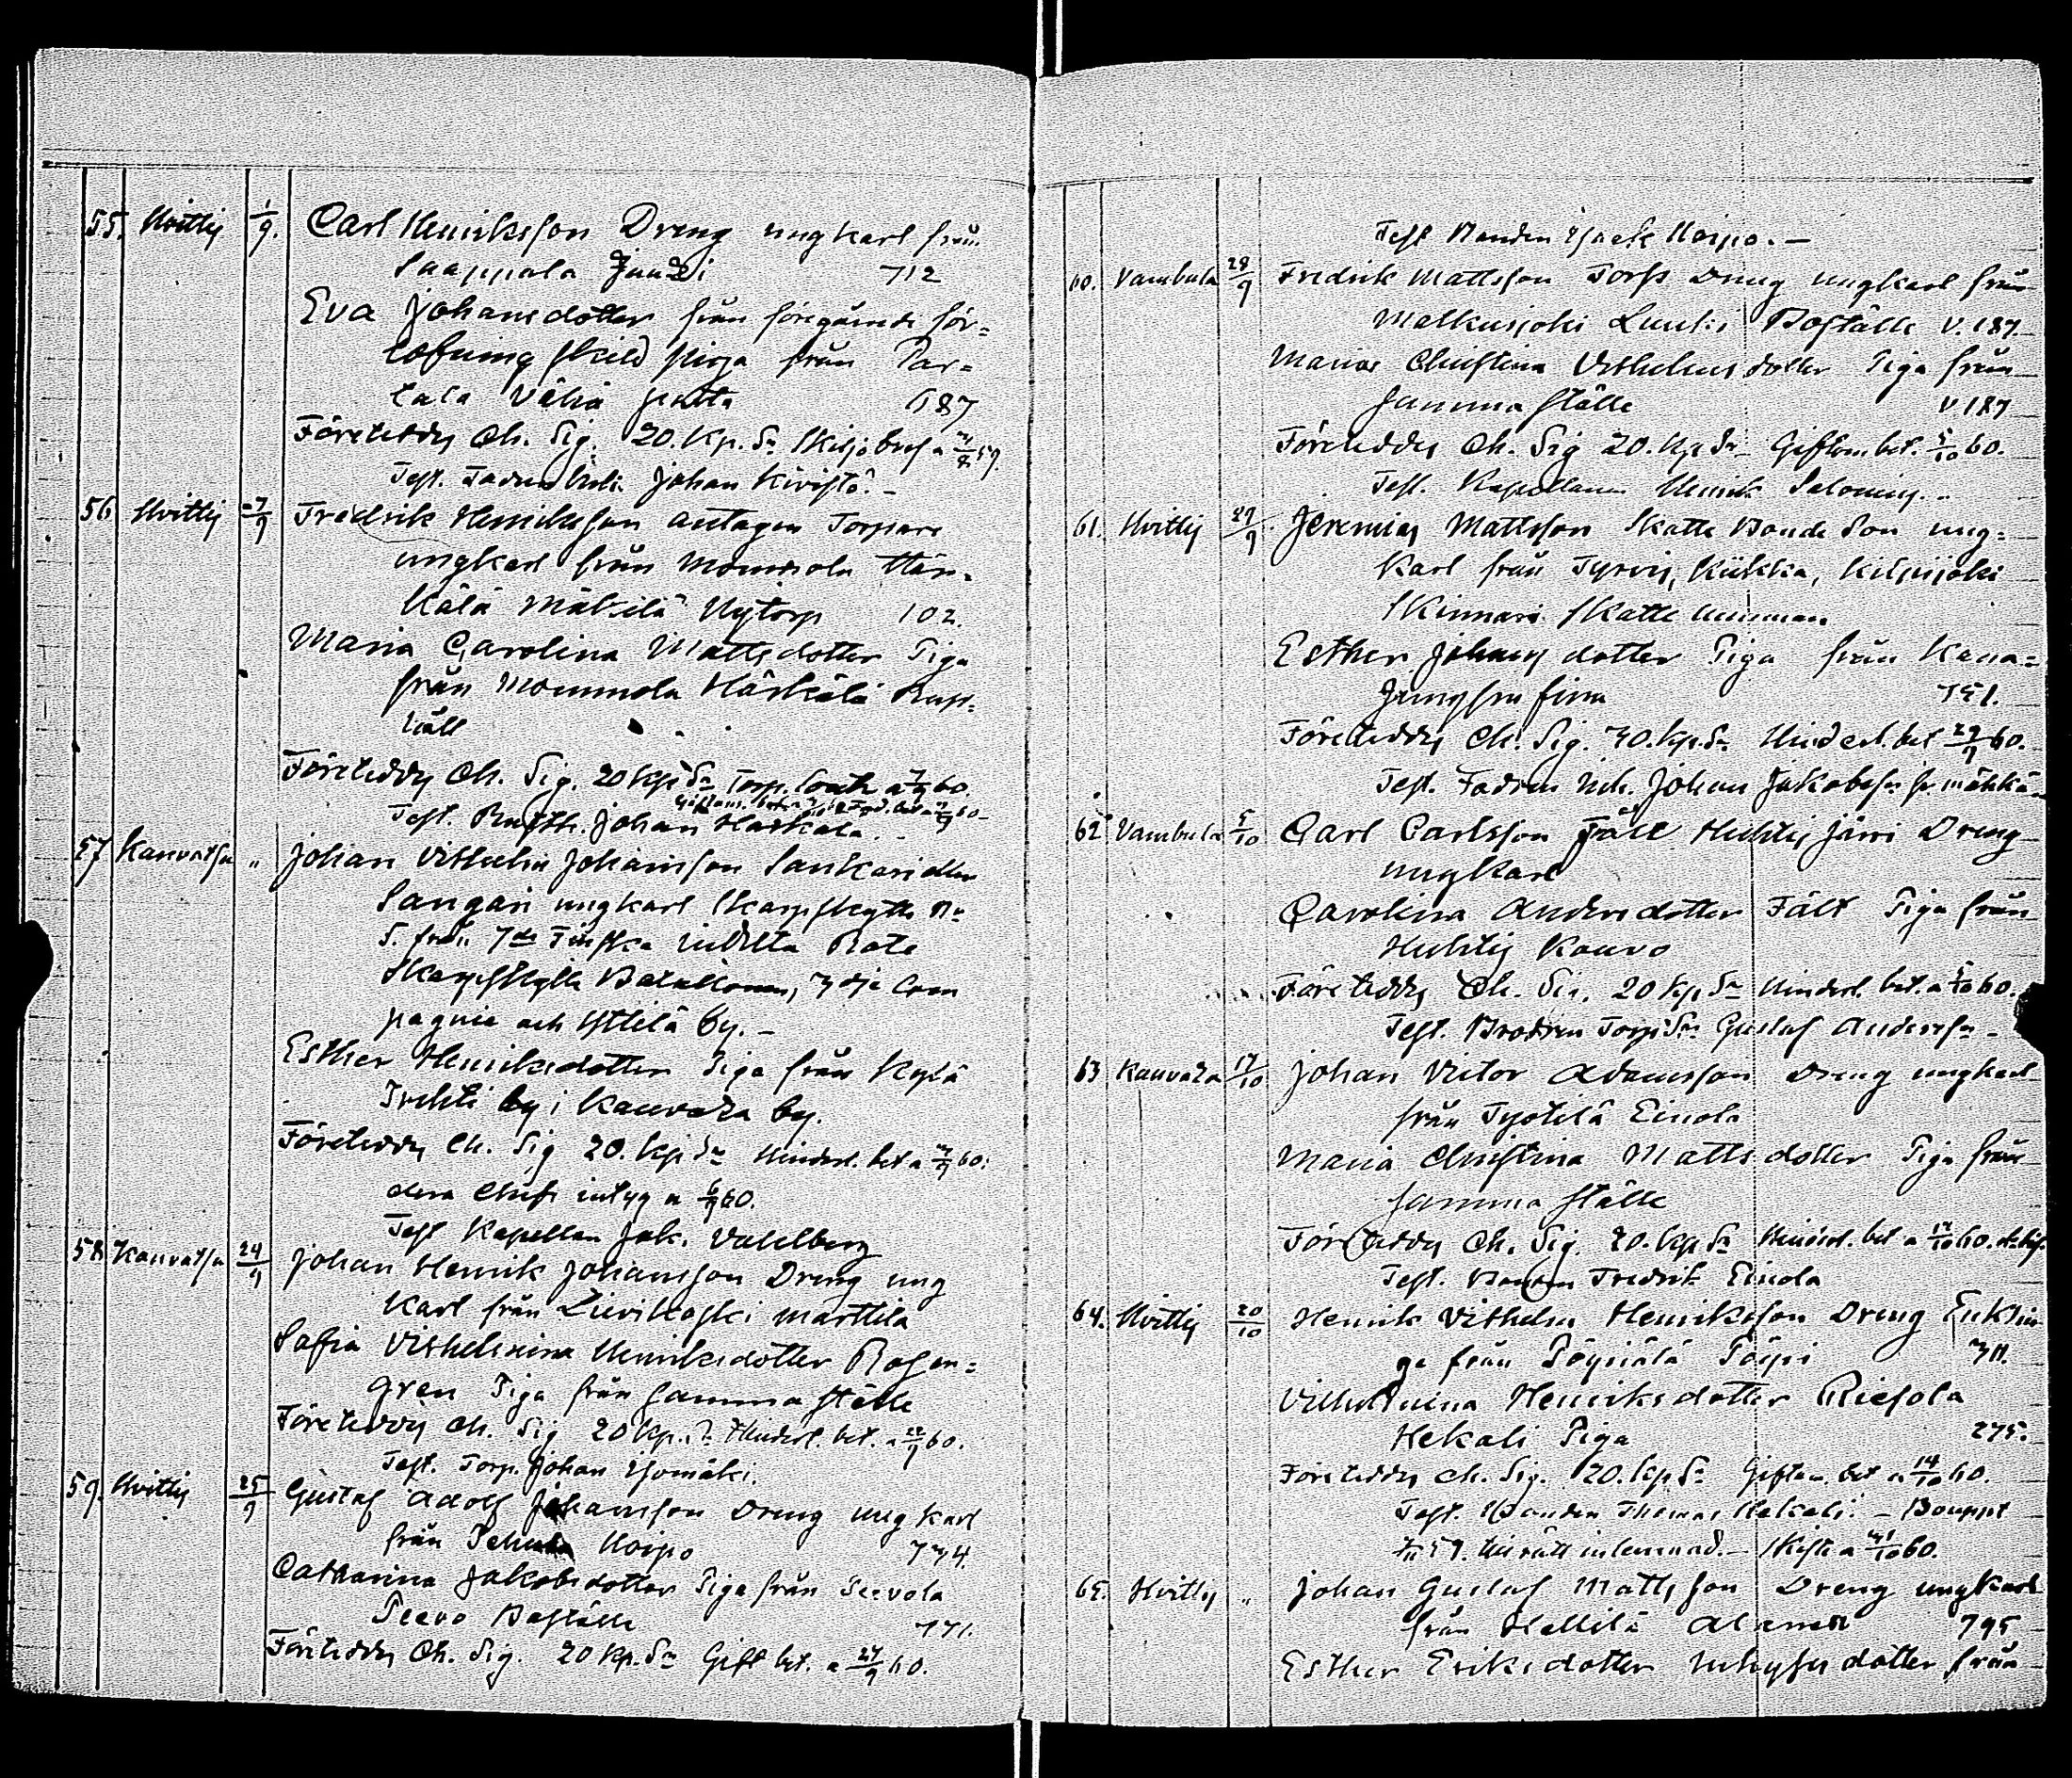 55. Hvittis 1/9. Carl Henriksson Dreng ungkarl från
Saappala Juusi 712
Eva Johansdotter från föregående för=
lofning skild piga från Par=
tala Vähä jutta 687
Företeddes Ch. Sig. 20. Kp. Sr Skiljobref a 59.
Test. Fadren Johan Kivistö. -
56 Hvittis 7/9 Fredrik Henriksson antagen Torpare
ungkarl från Mommola Här=
kälä Mäkilä Nytorp 102.
Maria Carolina Mattsdotter Piga
från Mommola Härkälä Rust=
håll
Företeddes Ch. Sig. 20 Kp Sr Torp. Contr. a 7/9 60.
Test. Rusth. Johan Härkälä. -
57 Kauvatsa " Johan Vilhelm Johansson Sankari eller
Sangari ungkarl Skarpskytte Nr
5. från 7de Finska indelta Rote
Skarpskytte Bataillonen, 3dje Com
pagnie och Yttilä by. -
Esther Henriksdotter Piga från Kylä
by i Kauvaza by.
Företeddes Ch. Sig 20. Kp Sr Hindersl. bet a 7/9 60.
dera Chefs intyg a 6/9 60.
Test Kapellan Jak. Vahlberg
58 Kauvatsa 24/9 Johan Henrik Johansson Dreng ung
karl från Lievikoski Marttila
Sofia Vilhelmina Henriksdotter Rosen=
gren Piga från samma ställe
Företeddes Ch. Sig 20 Kp. Sr Hindersl. bet. a 22/9 60.
Test. Torp. Johan Isomäki.
59. Hvittis 25/9 Gustaf Adolf Johansson Dreng ungkarl
från Hoipo 734
Catharina Jakobsdotter Piga från Seevola
Peevo Boställe 771.
Företeddes Ch. Sig. 20 Kp. Sr Gift bet. a 24/9 60.
Test Bonden Isack Hoipo. -
60. Vambula 28/9 Fredrik Mattsson Torps Dreng ungkarl från
Matkusjoki Luuki Boställe V. 187
Maria Christina Vilhelmsdotter Piga från
samma ställe V 187
Företeddes Ch. Sig 20. Kp Sr Giftom. bet. 5/10 60.
Test. Kapellanen Henrik Salonius. -
61. Hvittis 29/9 Jeremias Mattsson Skatte Bonde Son ung=
karl från Tyrvis, Kiikka, Kilpijoki
Skinnari Skatte hemman
Esther Johans dotter Piga från Kana=
Jungfru 751.
Företeddes Ch. Sig. 30. Kp. Sr Hindersl. bet 29/9 60.
Test. Fadren Johan Jakobsson fr. Mähkä
62 Vambula 5/10 Carl Carlsson Fält Huhtis Järvi Dreng
ungkarl
Carolina Andersdotter Fält Piga från
Huhtis Kouvo
Företeddes Ch. Sig. 20 Kp Sr Hindersl. bet. a 5/10 60.
Test. Brodren Torp. Sn Gustaf Andersson -
63 Kauvaza 17/10 Johan Victor Adamsson Dreng ungkarl
från Tyotilä Einola
Maria Christina Mattsdotter Piga från
samma ställe
Företeddes Ch. Sig. 20. Kp Sr Hindersl. bet a 17/10 60.
Test. Bonden Fredrik Einola
64. Hvittis 20/10 Henrik Vilhelm Henriksson Dreng Enklin
ge från Pöyriälä Pörpi 311.
Vilhelmina Henriksdotter Riesola
Hekali Piga 275.
Företeddes Ch. Sig. 20. Kp Sr Giftom. bet a 14/10 60.
Test. Bonden Thomas Hekali. - Bouppt
59. till rätt inlemnad. - Skifte a 60.
65. Hvittis " Johan Gustaf Mattsson Dreng ungkarl
från Hellilä 795
Esther Eriksdotter Inhyses dotter från